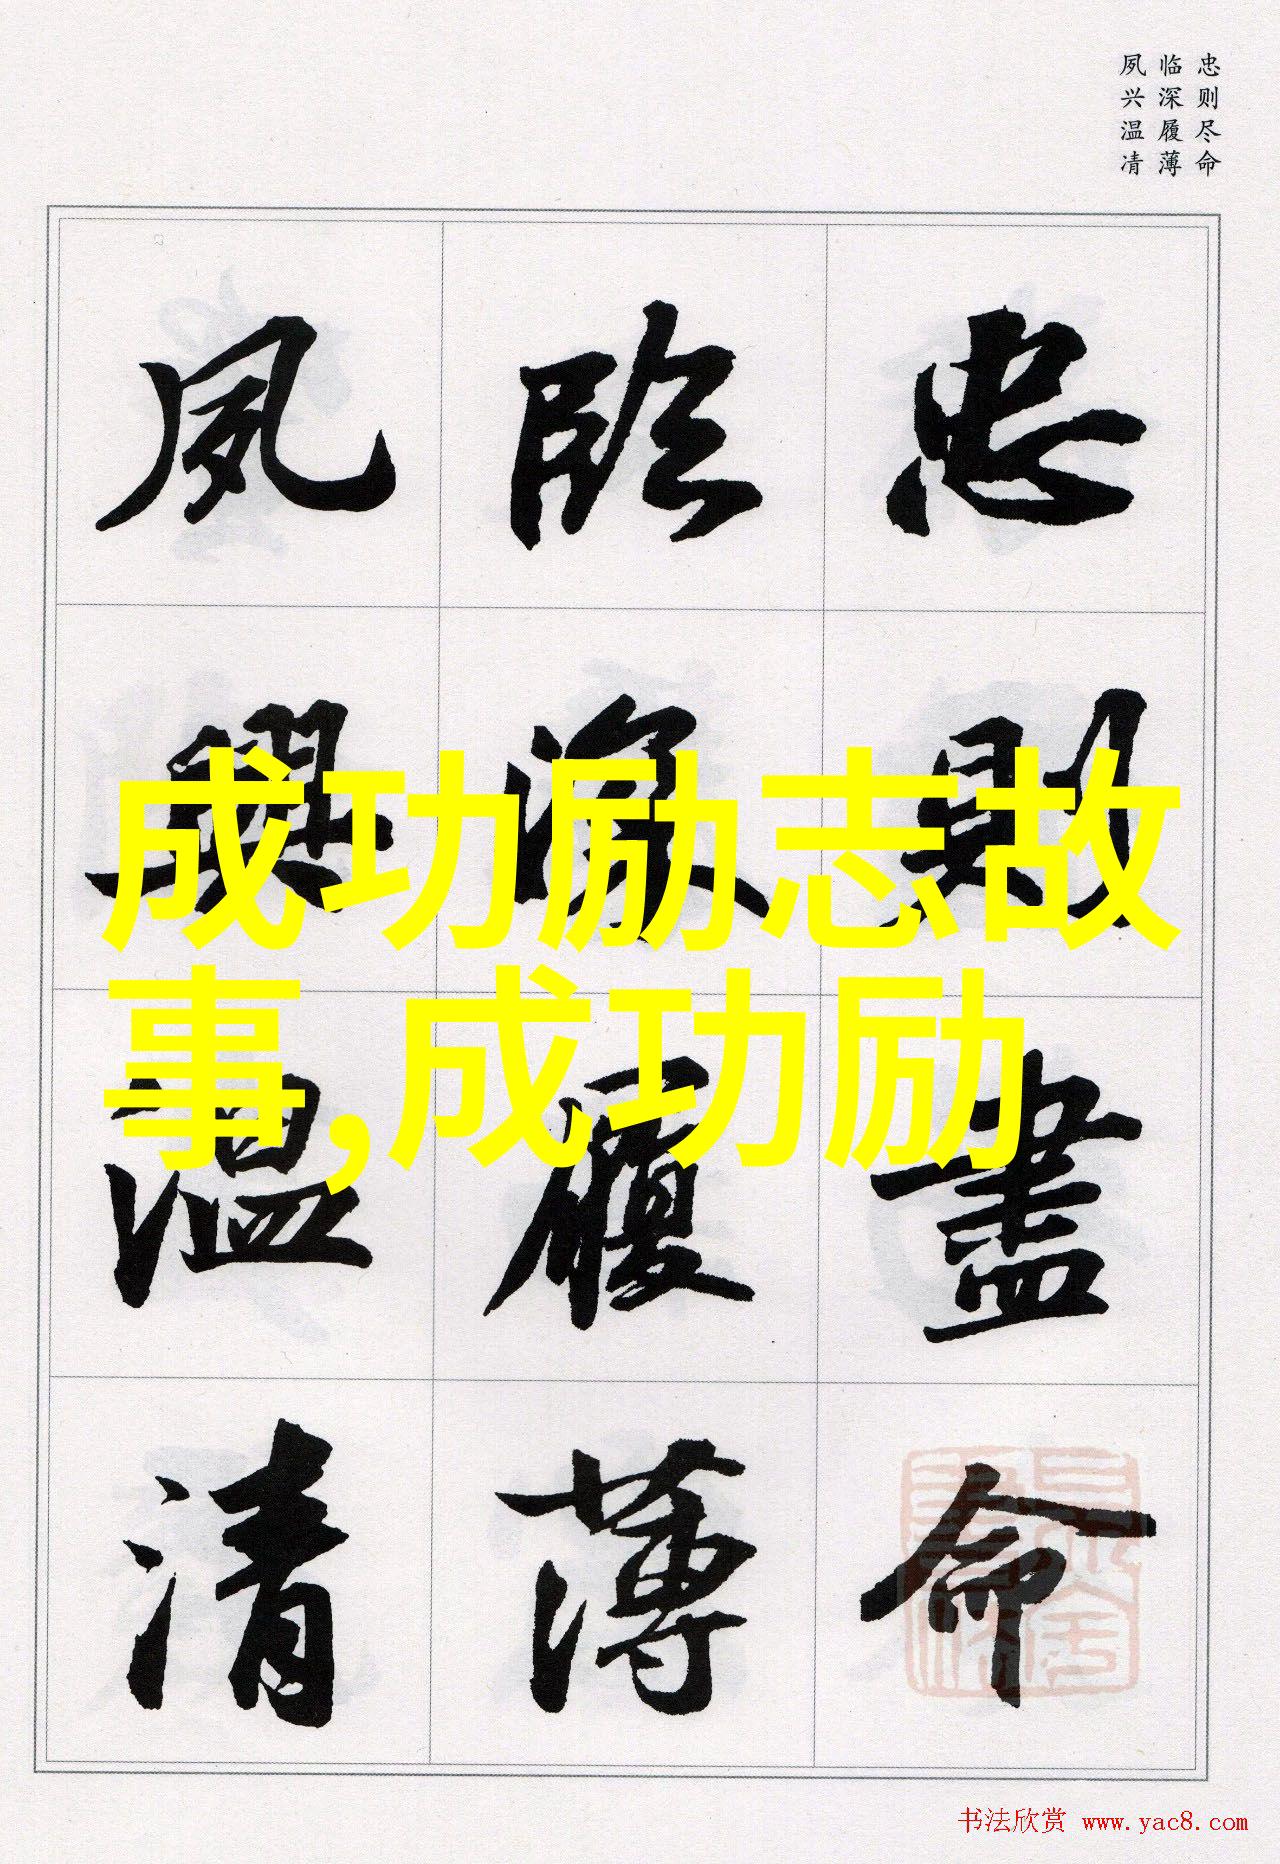 忠则尽命
临深履薄
夙兴温凊
忠則盡命
臨深履薄
夙興温清
成功励志故
事,成功励
书法欣赏 www.yac8.com